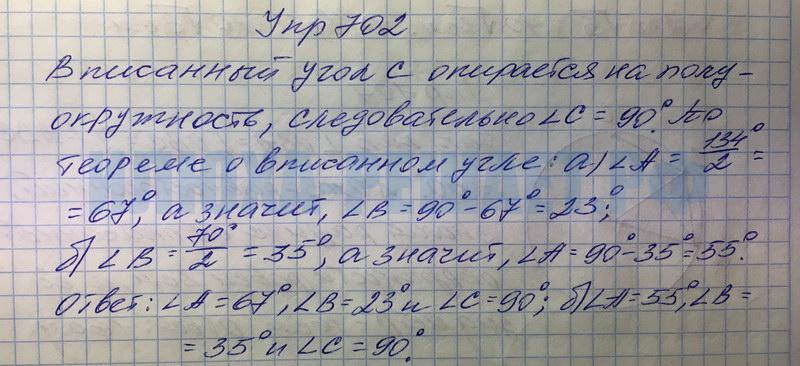 Упр 702
Вписанный угол С опирается на полу-
окружность, следовательно ∠C = 90°. По
теореме о вписанном угле: а) ∠A = 134°/2 =
= 67°, а значит, ∠B = 90° - 67° = 23°;
б) ∠B = 70°/2 = 35°, а значит, ∠A = 90° - 35° = 55°.
Ответ: ∠A = 67°, ∠B = 23° и ∠C = 90°; б) ∠A = 55°, ∠B =
= 35° и ∠C = 90°.